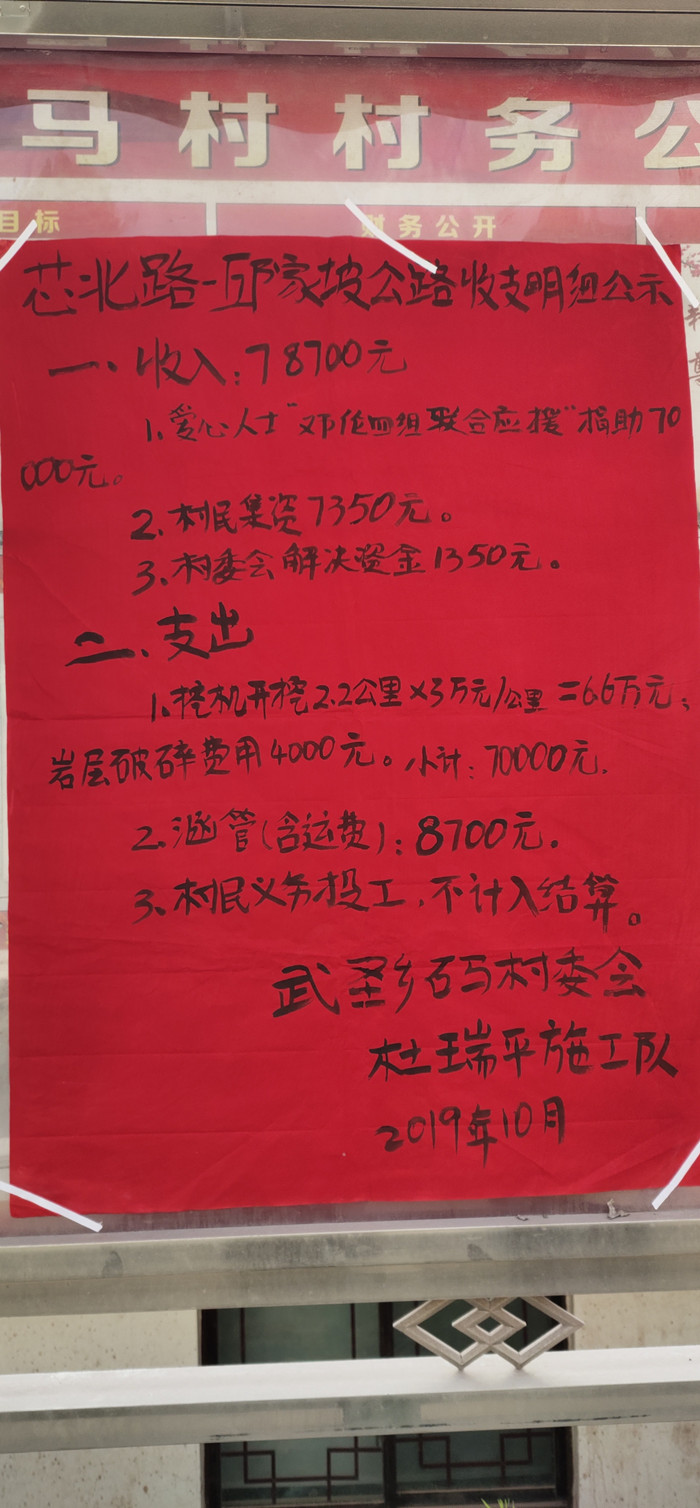 马村村务公
目标
财务公开
芯北路-邱家坡公路收支明细公示
一、收入:78700元
1、爱心人士"邓伦四组联合应援"捐助70
000元。
2、村民集资7350元。
3、村委会解决资金1350元。
二、支出
1、挖机开挖2.2公里×3万元/公里=6.6万元;
岩层破碎费用4000元。小计:70000元.
2、涵管(含运费):8700元.
3、村民义务投工,不计入结算。
武圣乡码村委会
杜瑞平施工队
2019年10月